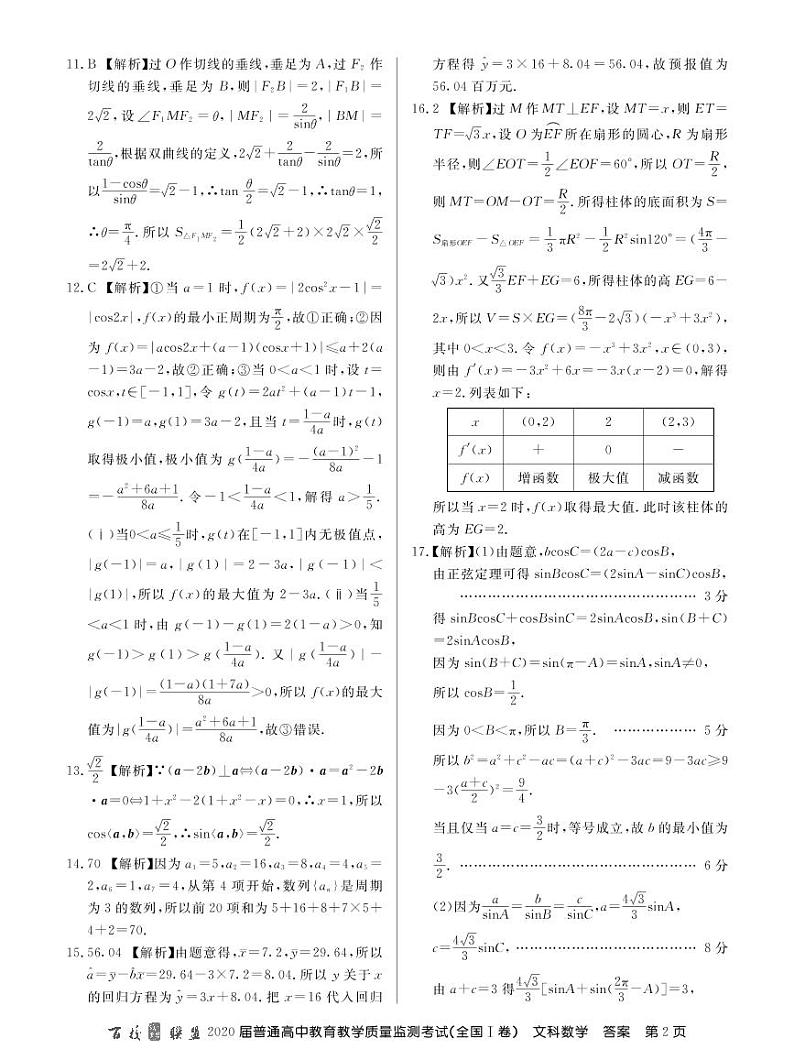 11. B 【解析】过 O 作切线的垂线,垂足为 A,过 F₂ 作
切线的垂线,垂足为 B,则|F₂B|=2,|F₁B|=
2√2,设∠F₁MF₂=θ,|MF₂|=2/sinθ,|BM|=
2/tanθ,根据双曲线的定义,2√2+2/tanθ-2/sinθ=2,所
以(1-cosθ)/sinθ=√2-1,∴tan θ/2=√2-1,∴tanθ=1,
∴θ=π/4.所以 S△F₁MF₂=1/2(2√2+2)×2√2×√2/2
=2√2+2.
12. C 【解析】①当 a=1 时,f(x)=|2cos²x-1|=
|cos2x|,f(x)的最小正周期为π/2,故①正确;②因
为 f(x)=|acos2x+(a-1)(cosx+1)|≤a+2(a
-1)=3a-2,故②正确;③当 0<a<1 时,设 t=
cosx,t∈[-1,1],令 g(t)=2at²+(a-1)t-1,
g(-1)=a,g(1)=3a-2,且当 t=(1-a)/4a时,g(t)
取得极小值,极小值为 g((1-a)/4a)=-(a-1)²/8a-1
=-(a²+6a+1)/8a.令-1<(1-a)/4a<1,解得 a>1/5.
(ⅰ)当0<a≤1/5时,g(t)在[-1,1]内无极值点,
|g(-1)|=a,|g(1)|=2-3a,|g(-1)|<
|g(1)|,所以 f(x)的最大值为 2-3a.(ⅱ)当1/5
<a<1 时,由 g(-1)-g(1)=2(1-a)>0,知
g(-1)>g(1)>g((1-a)/4a).又|g((1-a)/4a)|-
|g(-1)|=(1-a)(1+7a)/8a>0,所以 f(x)的最大
值为|g((1-a)/4a)|=(a²+6a+1)/8a,故③错误.
13. √2/2 【解析】∵(a-2b)⊥a⇔(a-2b)·a=a²-2b
·a=0⇔1+x²-2(1+x²-x)=0,∴x=1,所以
cos⟨a,b⟩=√2/2,∴sin⟨a,b⟩=√2/2.
14. 70 【解析】因为 a₁=5,a₂=16,a₃=8,a₄=4,a₅=
2,a₆=1,a₇=4,从第 4 项开始,数列{aₙ}是周期
为 3 的数列,所以前 20 项和为 5+16+8+7×5+
4+2=70.
15. 56.04 【解析】由题意得,x̄=7.2,ȳ=29.64,所以
â=ȳ-b̂x̄=29.64-3×7.2=8.04.所以 y 关于 x
的回归方程为 ŷ=3x+8.04.把 x=16 代入回归
方程得 ŷ=3×16+8.04=56.04,故预报值为
56.04 百万元.
16. 2 【解析】过 M 作 MT⊥EF,设 MT=x,则 ET=
TF=√3x,设 O 为E͡F所在扇形的圆心,R 为扇形
半径,则∠EOT=1/2∠EOF=60°,所以 OT=R/2,
则 MT=OM-OT=R/2.所得柱体的底面积为 S=
S扇形OEF-S△OEF=1/3πR²-1/2R²sin120°=(4π/3-
√3)x².又√3/3EF+EG=6,所得柱体的高 EG=6-
2x,所以 V=S×EG=(8π/3-2√3)(-x³+3x²),
其中 0<x<3.令 f(x)=-x³+3x²,x∈(0,3),
则由 f′(x)=-3x²+6x=-3x(x-2)=0,解得
x=2.列表如下:
x (0,2) 2 (2,3)
f′(x) + 0 -
f(x) 增函数 极大值 减函数
所以当 x=2 时,f(x)取得最大值.此时该柱体的
高为 EG=2.
17.【解析】(1)由题意,bcosC=(2a-c)cosB,
由正弦定理可得 sinBcosC=(2sinA-sinC)cosB,
………………………………………… 3 分
得 sinBcosC+cosBsinC=2sinAcosB,sin(B+C)
=2sinAcosB,
因为 sin(B+C)=sin(π-A)=sinA,sinA≠0,
所以 cosB=1/2.
因为 0<B<π,所以 B=π/3. ……………… 5 分
所以 b²=a²+c²-ac=(a+c)²-3ac=9-3ac≥9
-3((a+c)/2)²=9/4.
当且仅当 a=c=3/2时,等号成立,故 b 的最小值为
3/2. ………………………………………… 6 分
(2)因为a/sinA=b/sinB=c/sinC,a=4√3/3 sinA,
c=4√3/3 sinC, ……………………………… 8 分
由 a+c=3 得4√3/3[sinA+sin(2π/3-A)]=3,
百校联盟 2020 届普通高中教育教学质量监测考试(全国Ⅰ卷) 文科数学 答案 第 2 页